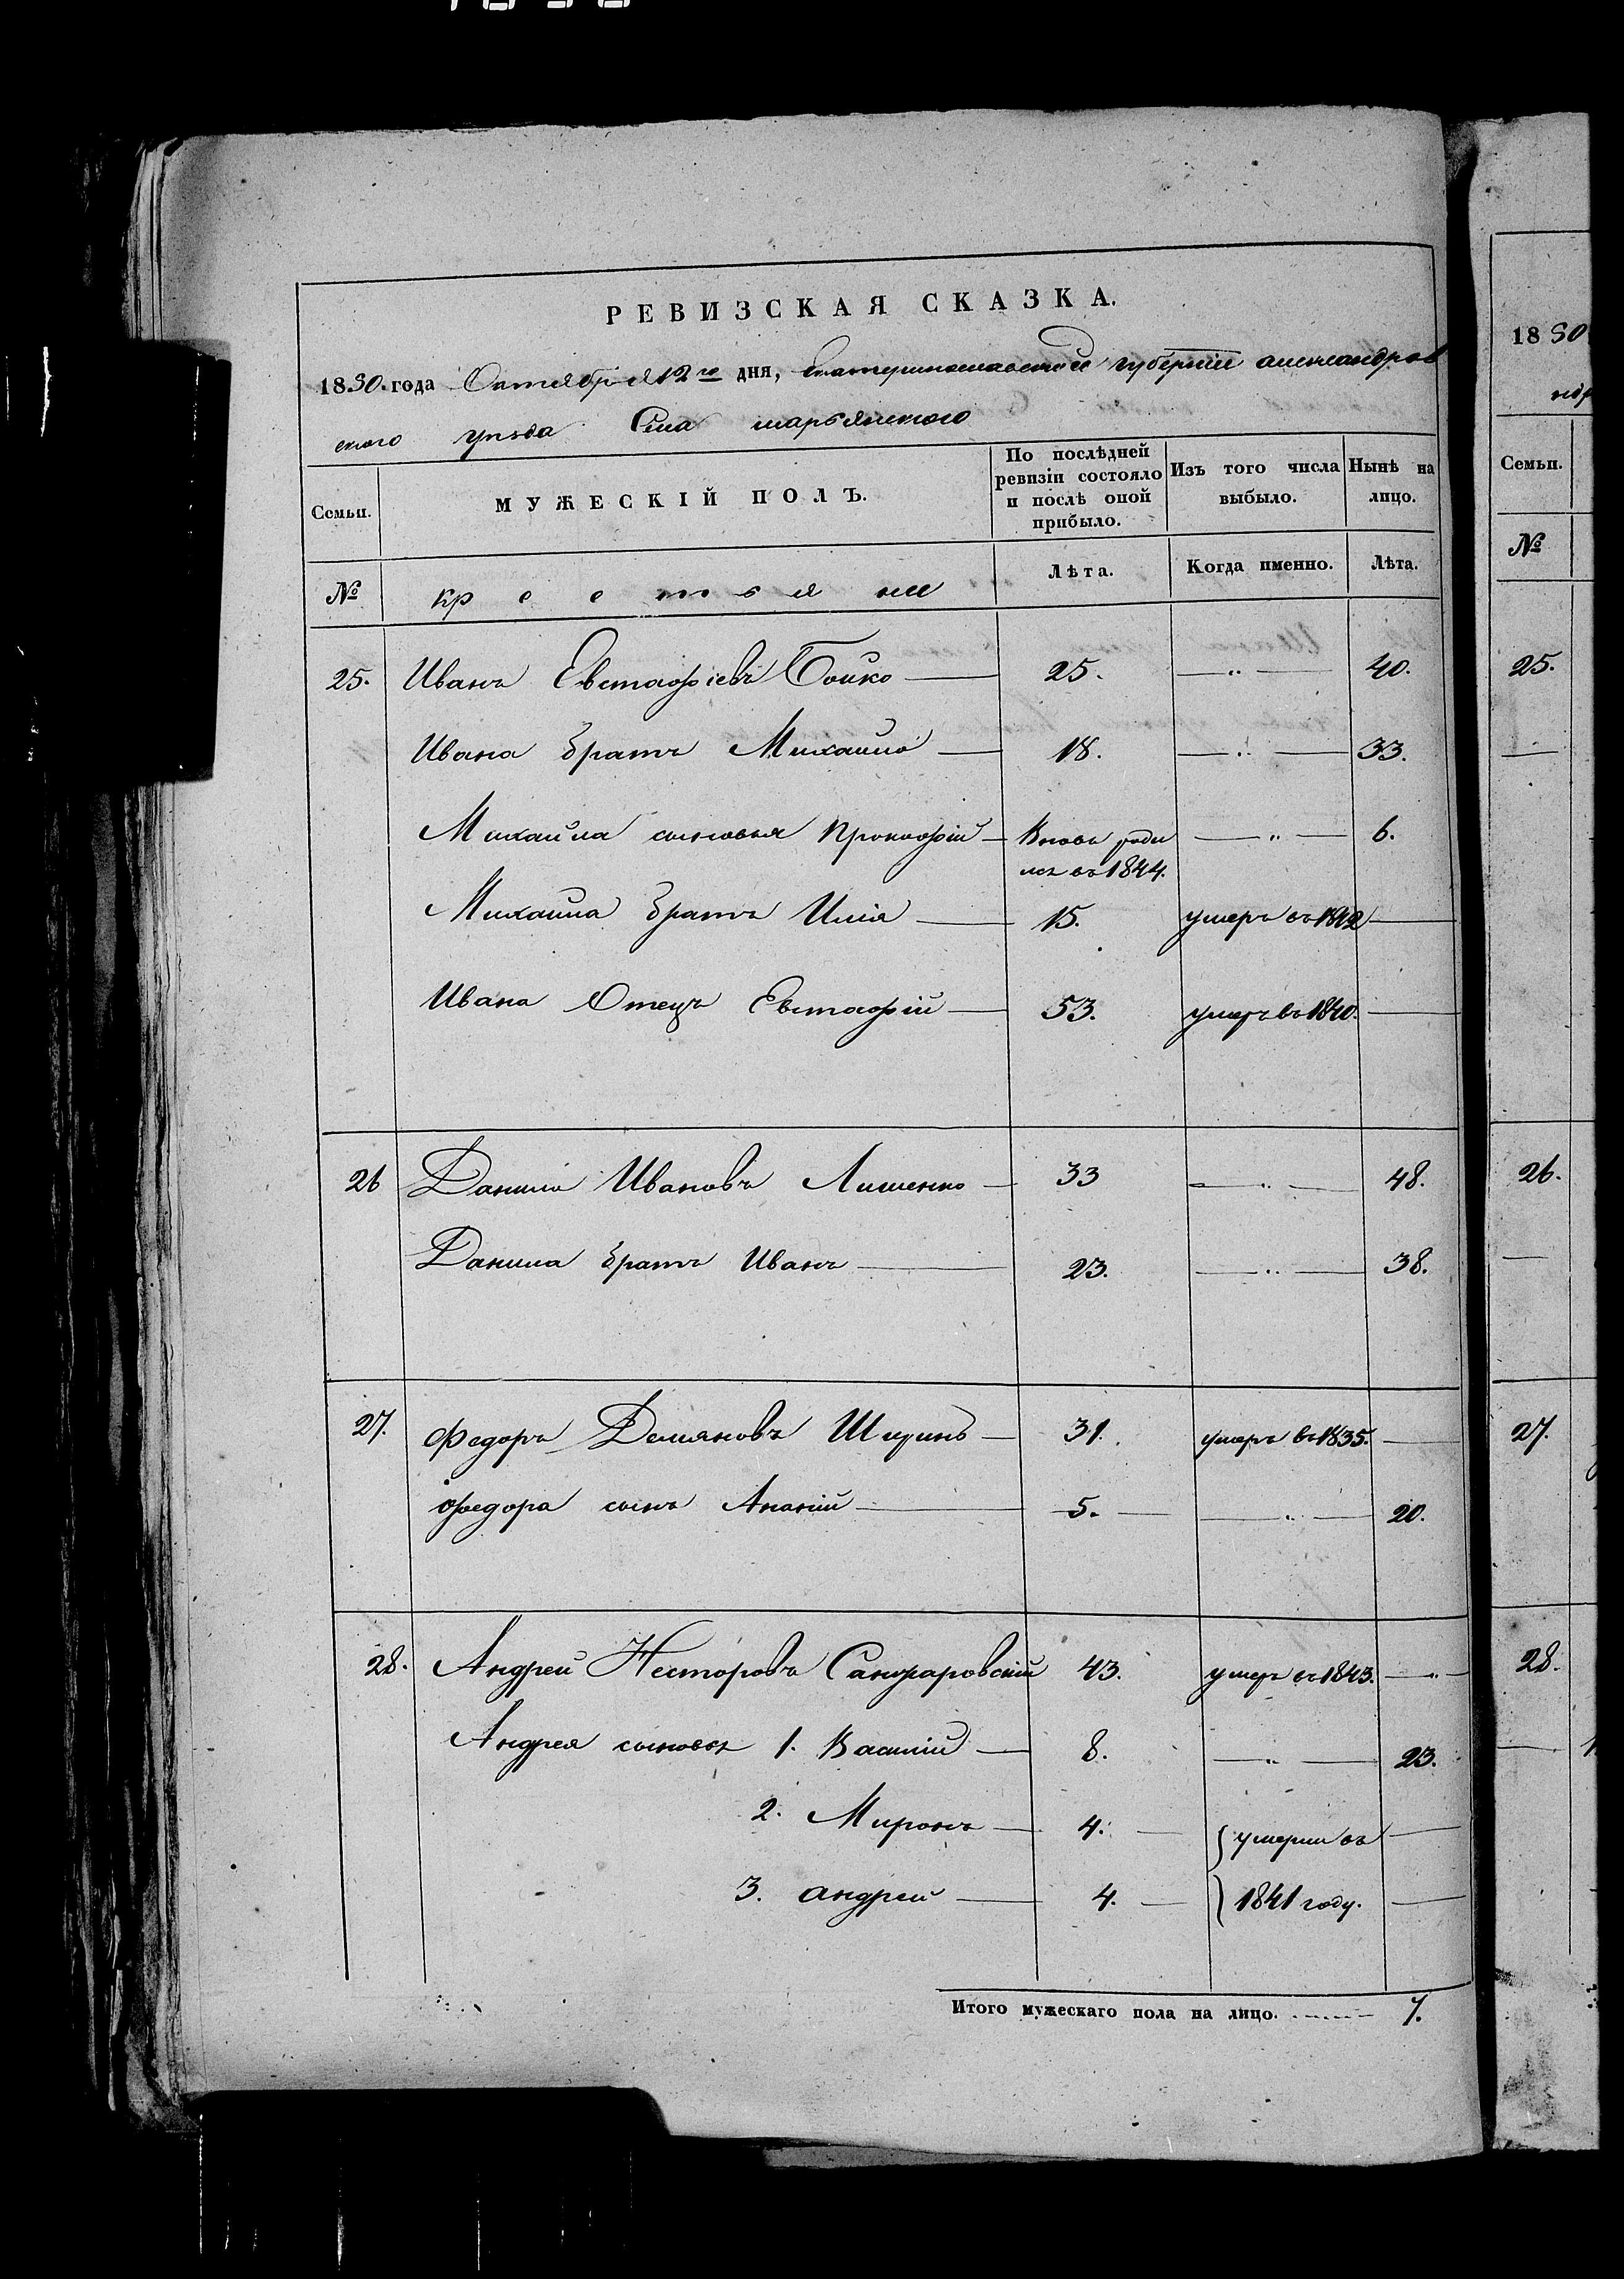 РЕВИЗСКАЯ СКАЗКА.
1850. года Октября 12го дня, Екатеринославской губерніи александров
ского уезда Села марьянского
Семьи.
МУЖЕСКІЙ ПОЛЪ.
По послѣдней
ревизіи состояло
и послѣ оной
прибыло.
Изъ того числа
выбыло.
Нынѣ на
лицо.
№ крестьяне Лѣта. Когда именно. Лѣта.
25. Иванъ Евстафіевъ Бойко — 25. — „ — 40.
Ивана братъ Михайло — 18. — „ — 33.
Михайла сыновья Прокофій — Вновь роди — „ — 6.
лся въ 1844.
Михайла братъ Илія — 15. умеръ въ 1842 —
Ивана Отецъ Евстафій — 53. умеръ въ 1840. —
26 Данило Ивановъ Лишенко — 33 — „ — 48.
Данила братъ Иванъ — 23. — „ — 38.
27. Федоръ Демяновъ — 31. умеръ въ 1835. —
Федора сынъ Ананій — 5. — — „ — 20.
28. Андрей Несторовъ Санжаровскій 43. умеръ въ 1843. — „ —
Андрея сыновья 1. Василій — 8. — „ — 23.
2. Миронъ — 4. — умерли въ —
3. андрей — 4. — 1841 году. —
Итого мужескаго пола на лицо. 7.
1850
Семьи.
№
25.
26.
27.
28.